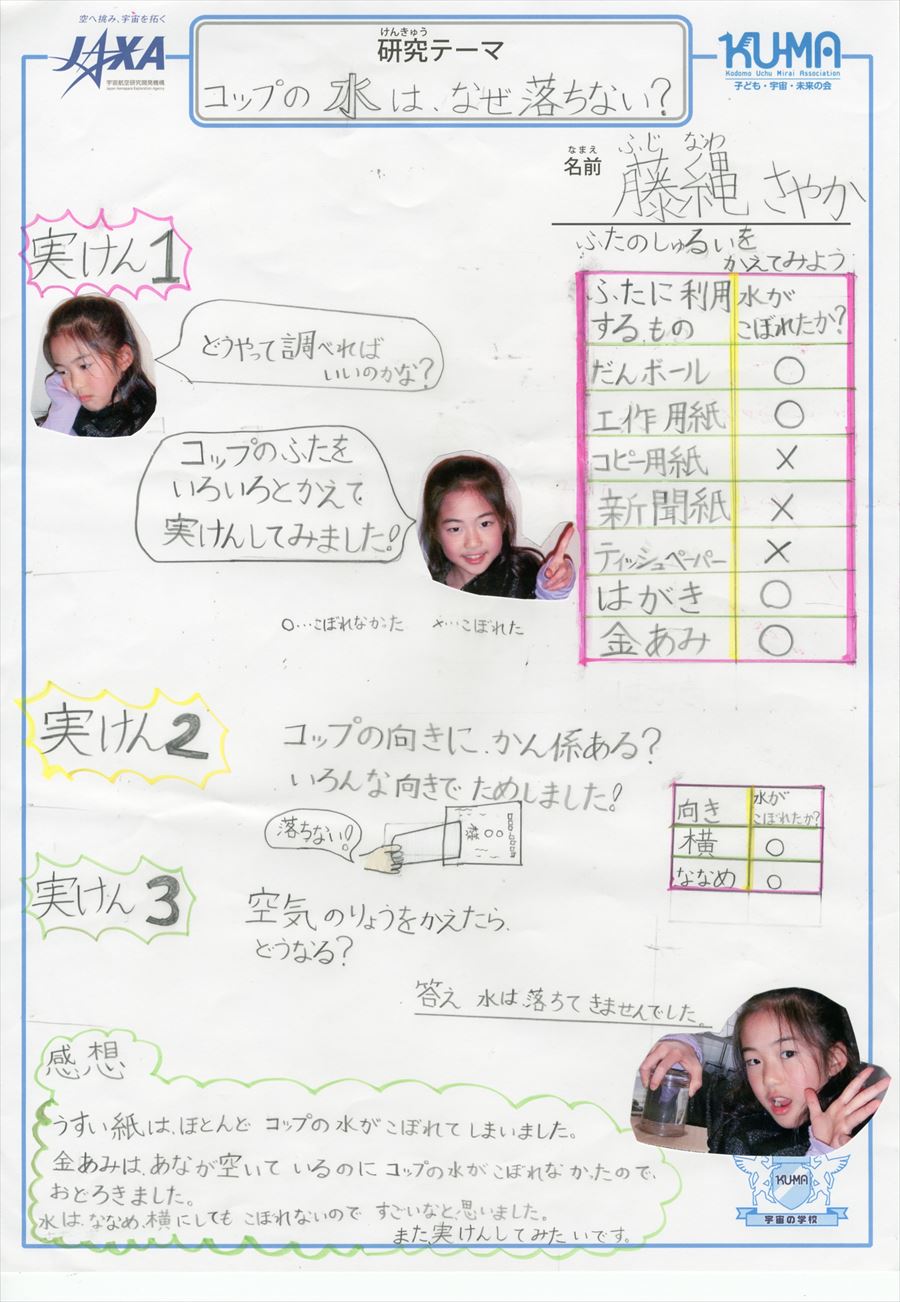 空へ挑み、宇宙を拓く
JAXA
宇宙航空研究開発機構
Japan Aerospace Exploration Agency
けんきゅう
研究テーマ
コップの水は、なぜ落ちない?
KU-MA
Kodomo Uchu Mirai Association
子ども・宇宙・未来の会
なまえ
ふじ なわ
名前 藤縄 さやか
実けん1
どうやって調べれば
いいのかな?
コップのふたを
いろいろとかえて
実けんしてみました!
○…こぼれなかった ×…こぼれた
ふたのしゅるいを
かえてみよう
ふたに利用するもの 水がこぼれたか?
だんボール ○
工作用紙 ○
コピー用紙 ×
新聞紙 ×
ティッシュペーパー ×
はがき ○
金あみ ○
実けん2
コップの向きに、かん係ある?
いろんな向きでためしました!
落ちない!
向き 水がこぼれたか?
横 ○
ななめ ○
実けん3
空気のりょうをかえたら、
どうなる?
答え 水は落ちてきませんでした。
感想
うすい紙は、ほとんどコップの水がこぼれてしまいました。
金あみは、あなが空いているのにコップの水がこぼれなかったので、
おどろきました。
水は、ななめ、横にしてもこぼれないのですごいなと思いました。
また、実けんしてみたいです。
KU-MA
宇宙の学校